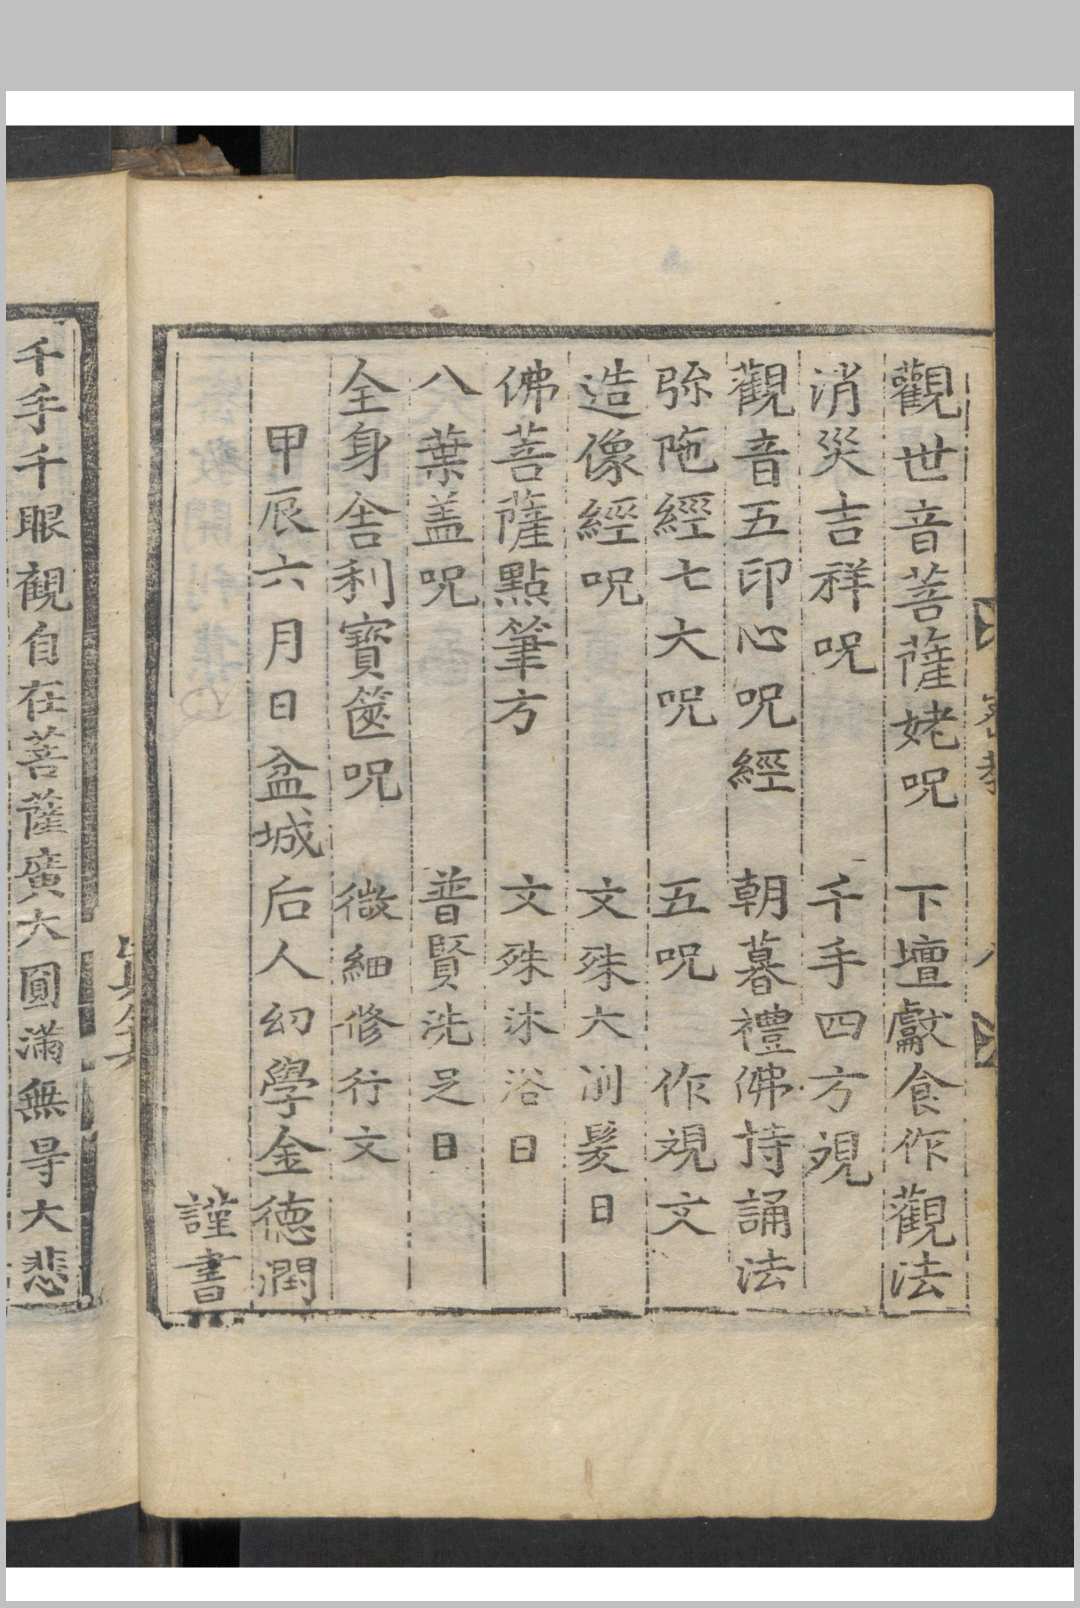 觀世音菩薩姥呪　下壇獻食作觀法
消災吉祥呪　千手四方覌
觀音五印心呪經　朝暮禮佛持誦法
弥陁經七大呪　五呪　作覌文
造像經呪　文殊大刪髮日
佛菩薩點筆方　文殊沐浴日
八葉盖呪　普賢洗足日
全身舍利寶篋呪　微細修行文
甲辰六月日盆城后人幻學金德潤
謹書
千手千眼觀自在菩薩廣大圓滿無㝵大悲